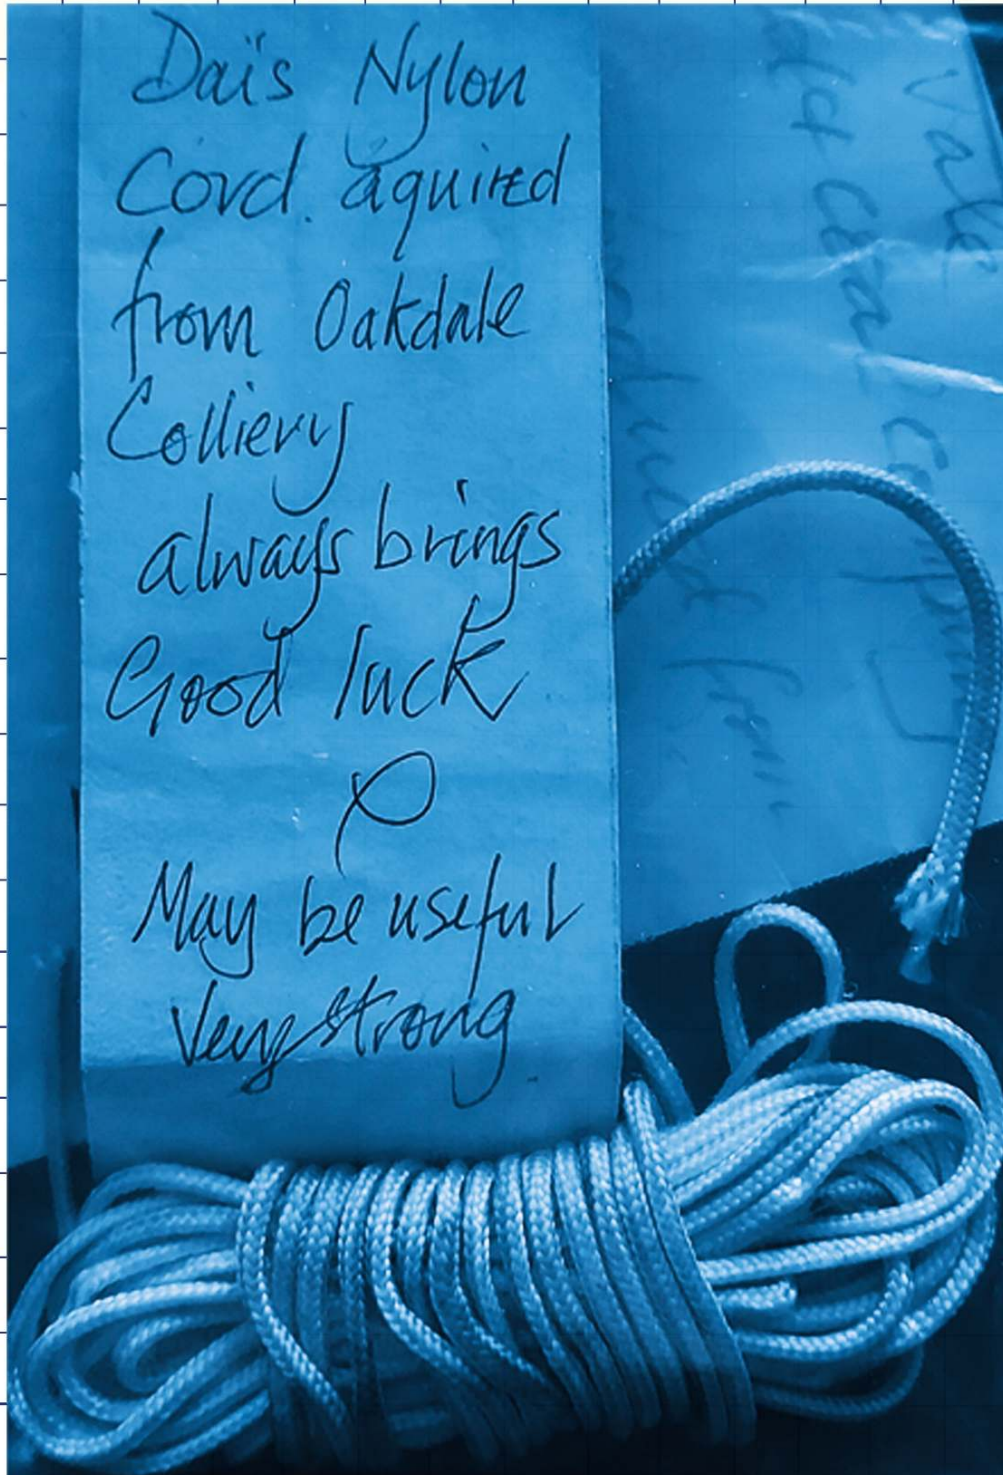 Dai's Nylon
Cord. aquired
from Oakdale
Colliery
always brings
Good luck
May be useful
Very strong
Vale